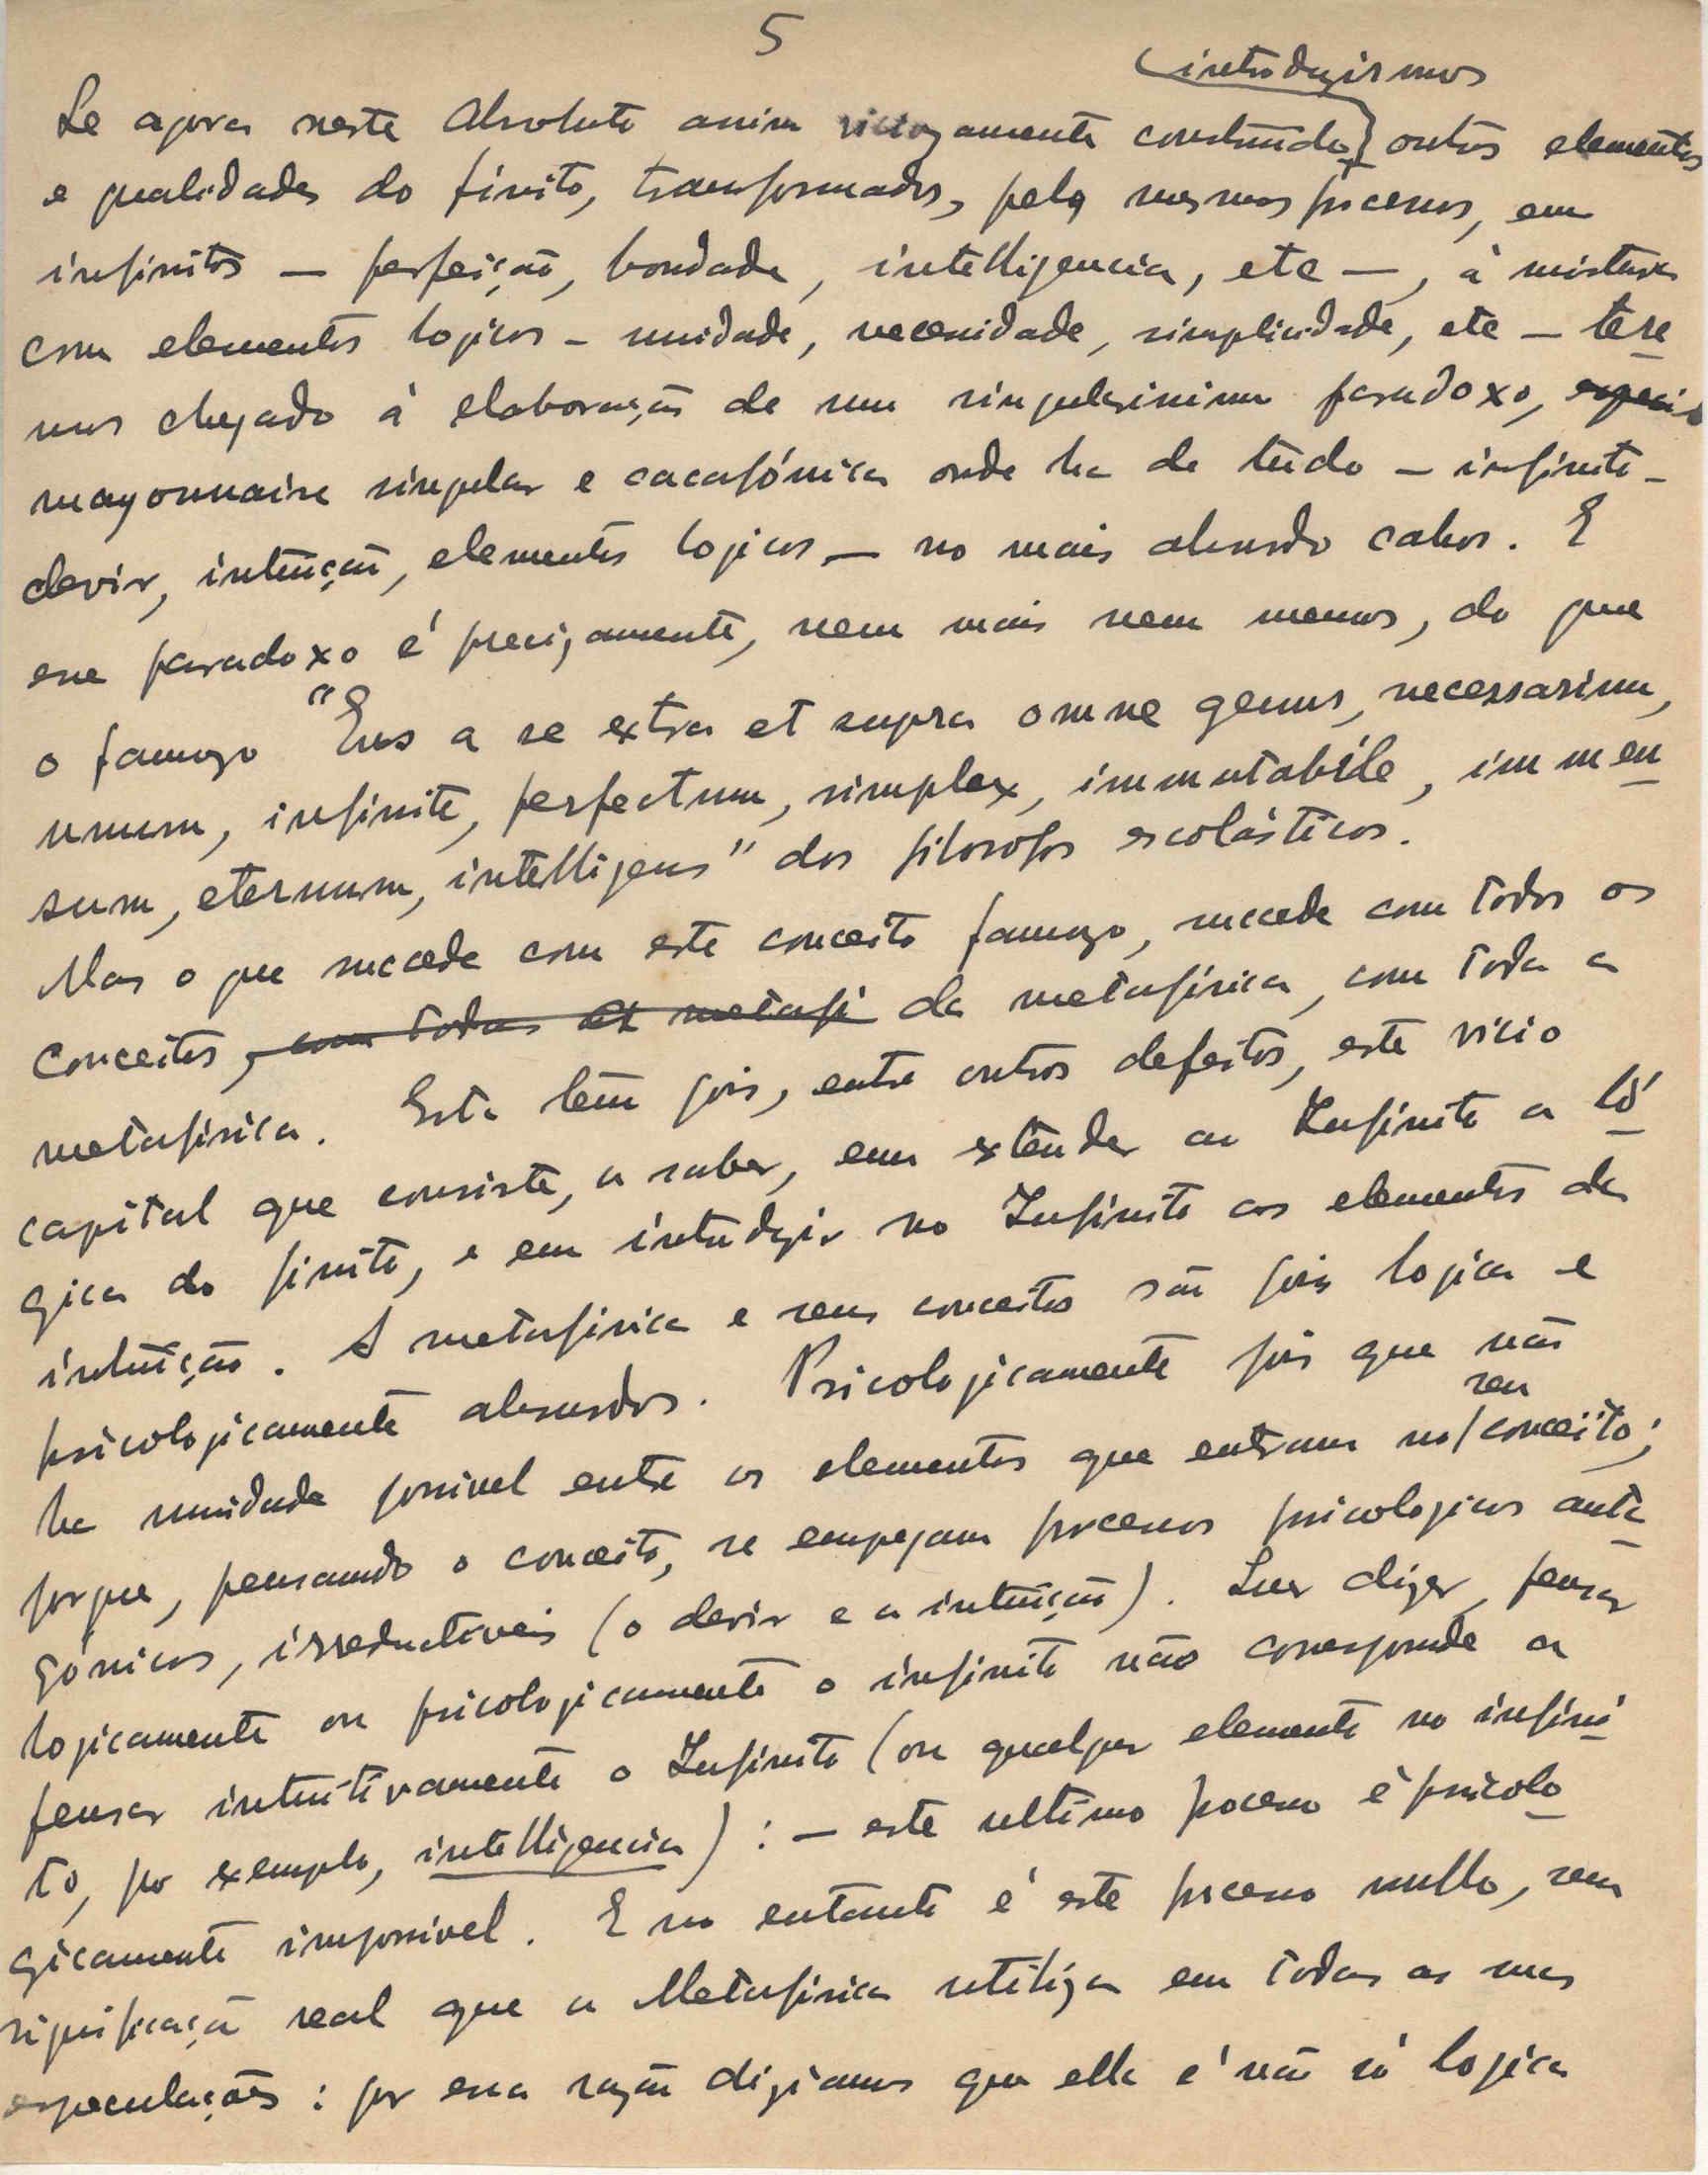 5
introduzirmos
Se agora neste Absoluto assim viciozamente construido, outros elementos
e qualidades do finito, transformados, pelos mesmos processos, em
infinitos — perfeição, bondade, intelligencia, etc —, á mistura
com elementos logicos — unidade, necessidade, simplicidade, etc — tere
mos chegado á elaboração de um singularissimo paradoxo,
mayonnaise singular e cacafónica onde ha de tudo — infinito —
devir, intuição, elementos logicos — no mais absurdo cahos. E
esse paradoxo é precizamente, nem mais nem menos, do que
o famozo "Ens a se extra et supra omne genus, necessarium,
unum, infinite, perfectum, simplex, immutabile, immen
sum, eternum, intelligens" dos filosofos escolásticos.
Mas o que succede com este conceito famozo, succede com todos os
conceitos, com todas as metafi da metafisica, com toda a
metafisica. Esta tem pois, entre outros defeitos, este vicio
capital que consiste, a saber, em extender ao Infinito a ló
gica do finito, e em introduzir no Infinito os elementos da
intuição. A metafisica e seus conceitos são pois logica e
psicologicamente absurdos. Psicologicamente pois que não
seu
ha unidade possivel entre os elementos que entram no conceito;
porque, pensando o conceito, se empregam processos psicologicos anta
gónicos, irreductiveis (o devir e a intuição). Quer dizer, pensar
logicamente ou psicologicamente o infinito não corresponde a
pensar intuitivamente o Infinito (ou qualquer elemento no infini
to, por exemplo, intelligencia) : — este ultimo processo é psicolo
gicamente impossivel. E no entanto é este processo nullo, sem
significação real que a Metafisica utiliza em todas as suas
especulações : por essa razão diziamos que ella é não só logica